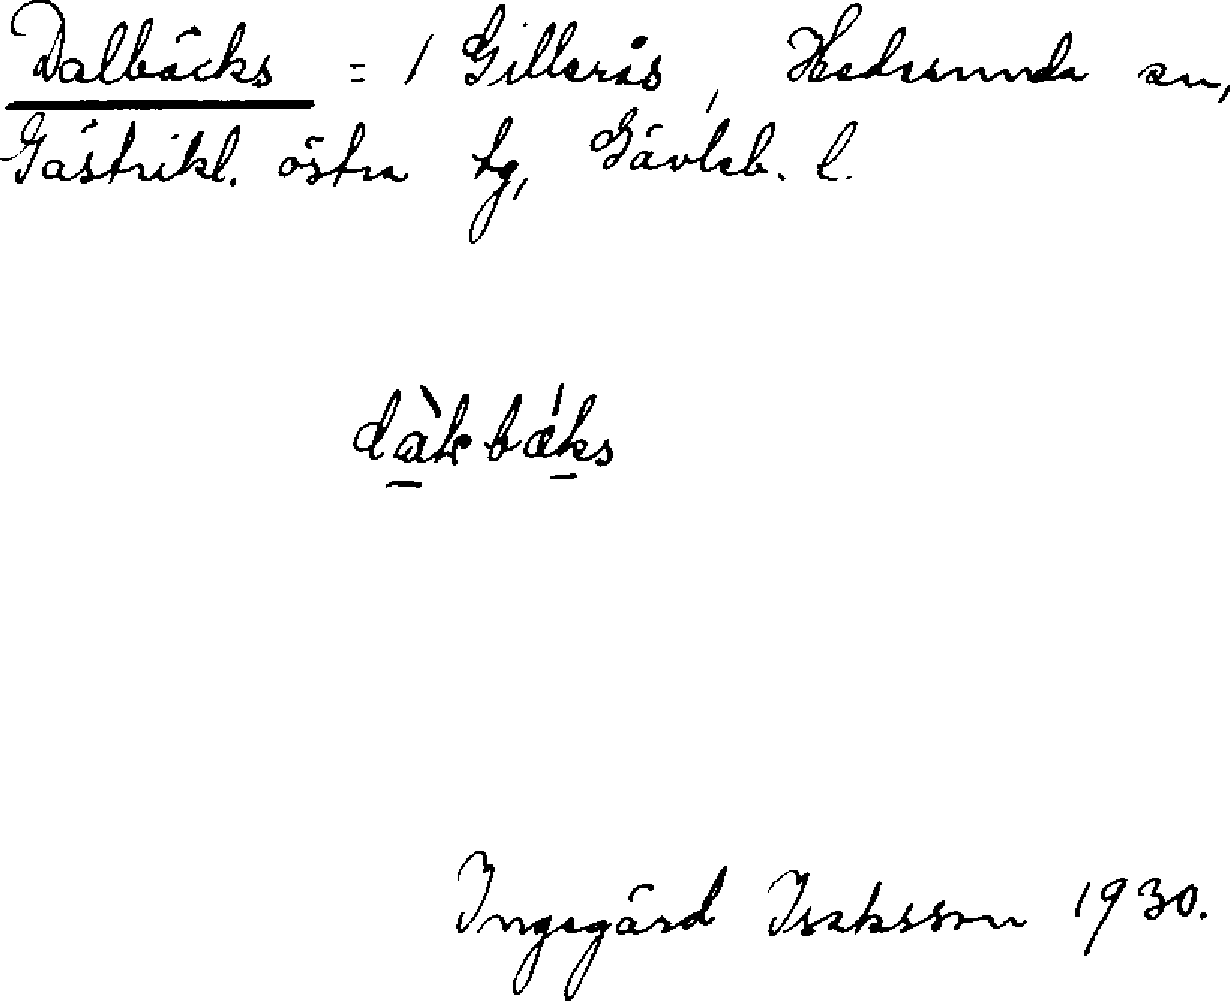 Dalbäcks = 1 Gillerås, Hedesunda sn,
Gästrikl. östra tg, Gävleb. l.
dàlbáks
Ingegärd Isaksson 1930.